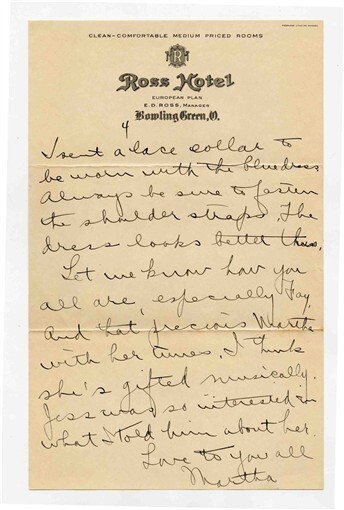 CLEAN-COMFORTABLE MEDIUM PRICED ROOMS
R
Ross Hotel
EUROPEAN PLAN
E.D. ROSS, MANAGER
Bowling Green, O.
4
I sent a lace collar to
be worn with the blue dress
Always be sure to fasten
the shoulder straps. The
dress looks better thus.
Let me know how you
all are, especially Fay.
And that precious Martha
with her tunes. I think
she's gifted musically.
Jess was so interested in
what I told him about her.
Love to you all
Martha